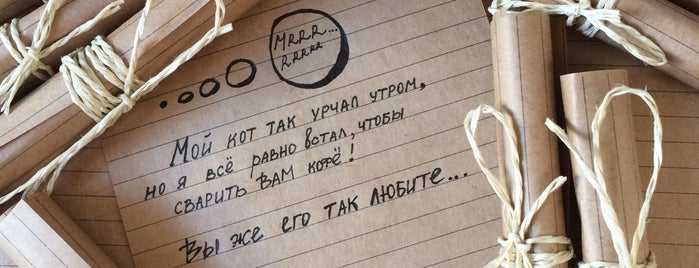 MRRR...
RRRRR
Мой кот так урчал утром,
но я всё равно встал, чтобы
сварить вам кофё!
Вы же его так любите...